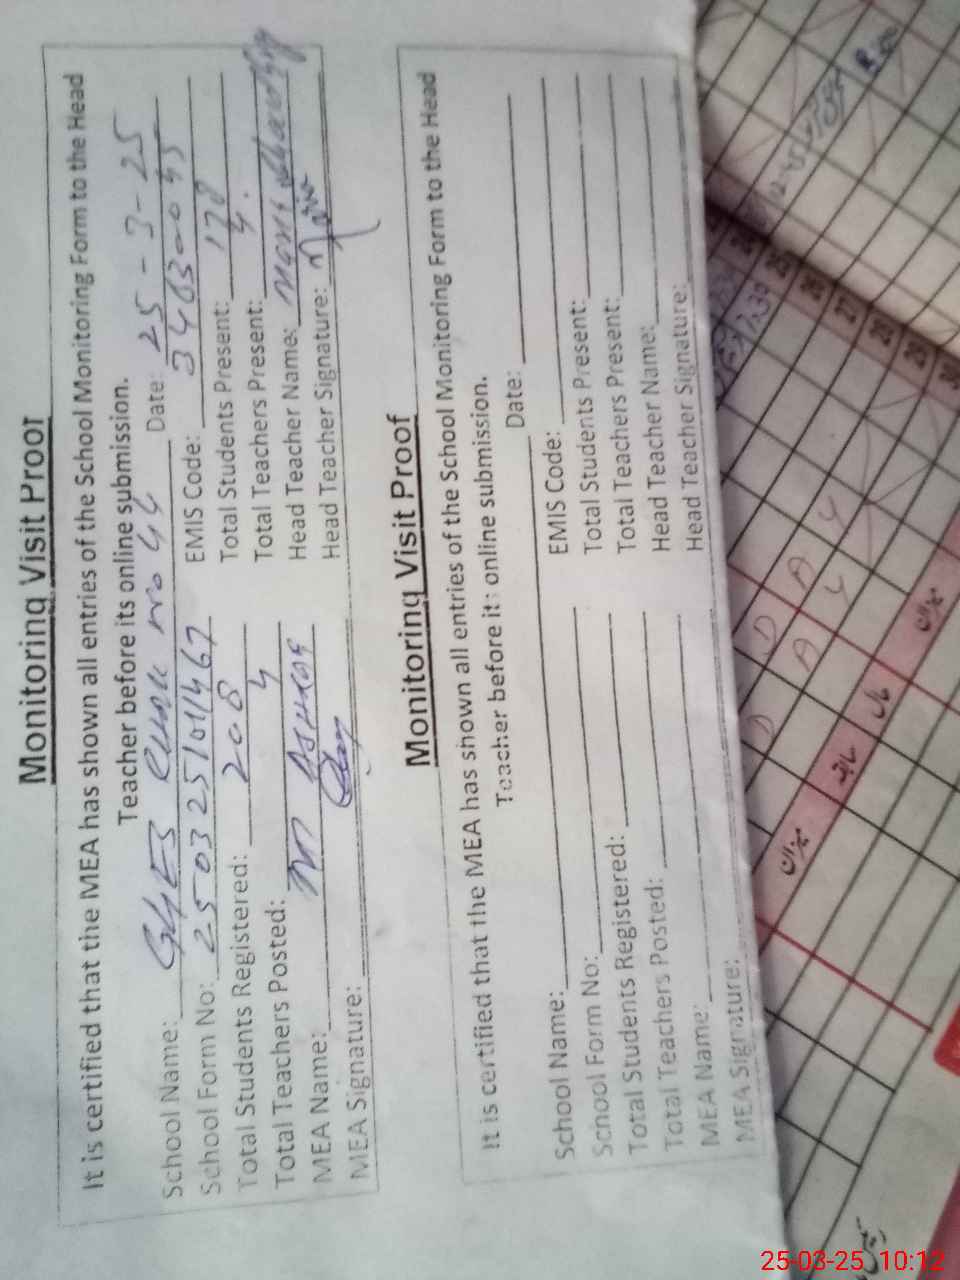 Monitoring Visit Proof
It is certified that the MEA has shown all entries of the School Monitoring Form to the Head
Teacher before its online submission.
School Name: no 44 Date: 25-3-25
School Form No: 2503251011467 EMIS Code:
Total Students Registered: 208 Total Students Present: 178
Total Teachers Posted: 4 Total Teachers Present: 4.
MEA Name: M Head Teacher Name:
MEA Signature: Head Teacher Signature:
Monitoring Visit Proof
It is certified that the MEA has shown all entries of the School Monitoring Form to the Head
Teacher before its online submission.
School Name: Date:
School Form No: EMIS Code:
Total Students Registered: Total Students Present:
Total Teachers Posted: Total Teachers Present:
MEA Name: Head Teacher Name:
MEA Signature: Head Teacher Signature:
25
26
27
28
29
30
D D A Y
A Y
25-03-25 10:12